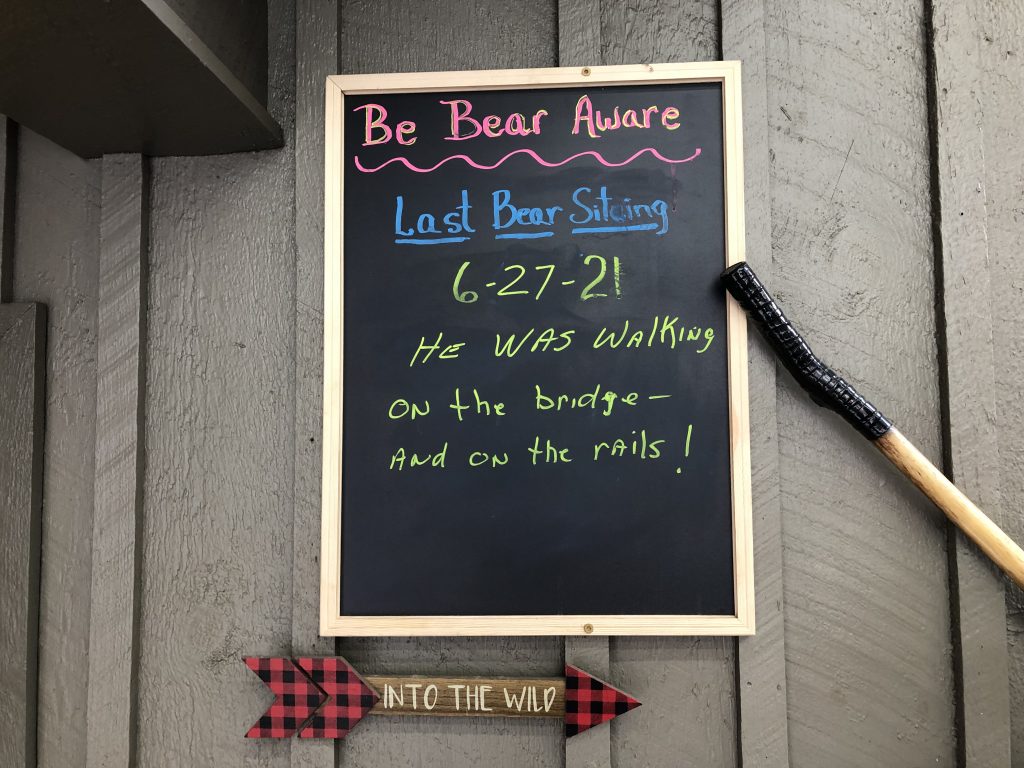 Be Bear Aware
Last Bear Sitaing
6-27-21
HE WAS WALKING
ON the bridge-
AND ON the rails!
INTO THE WILD